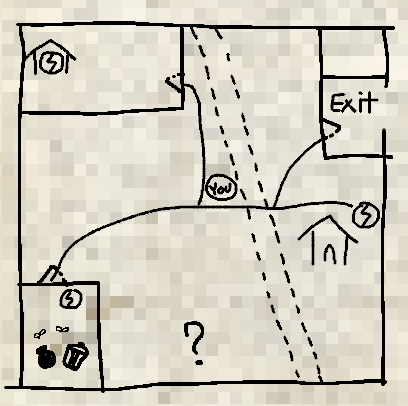 Exit
YOU
?